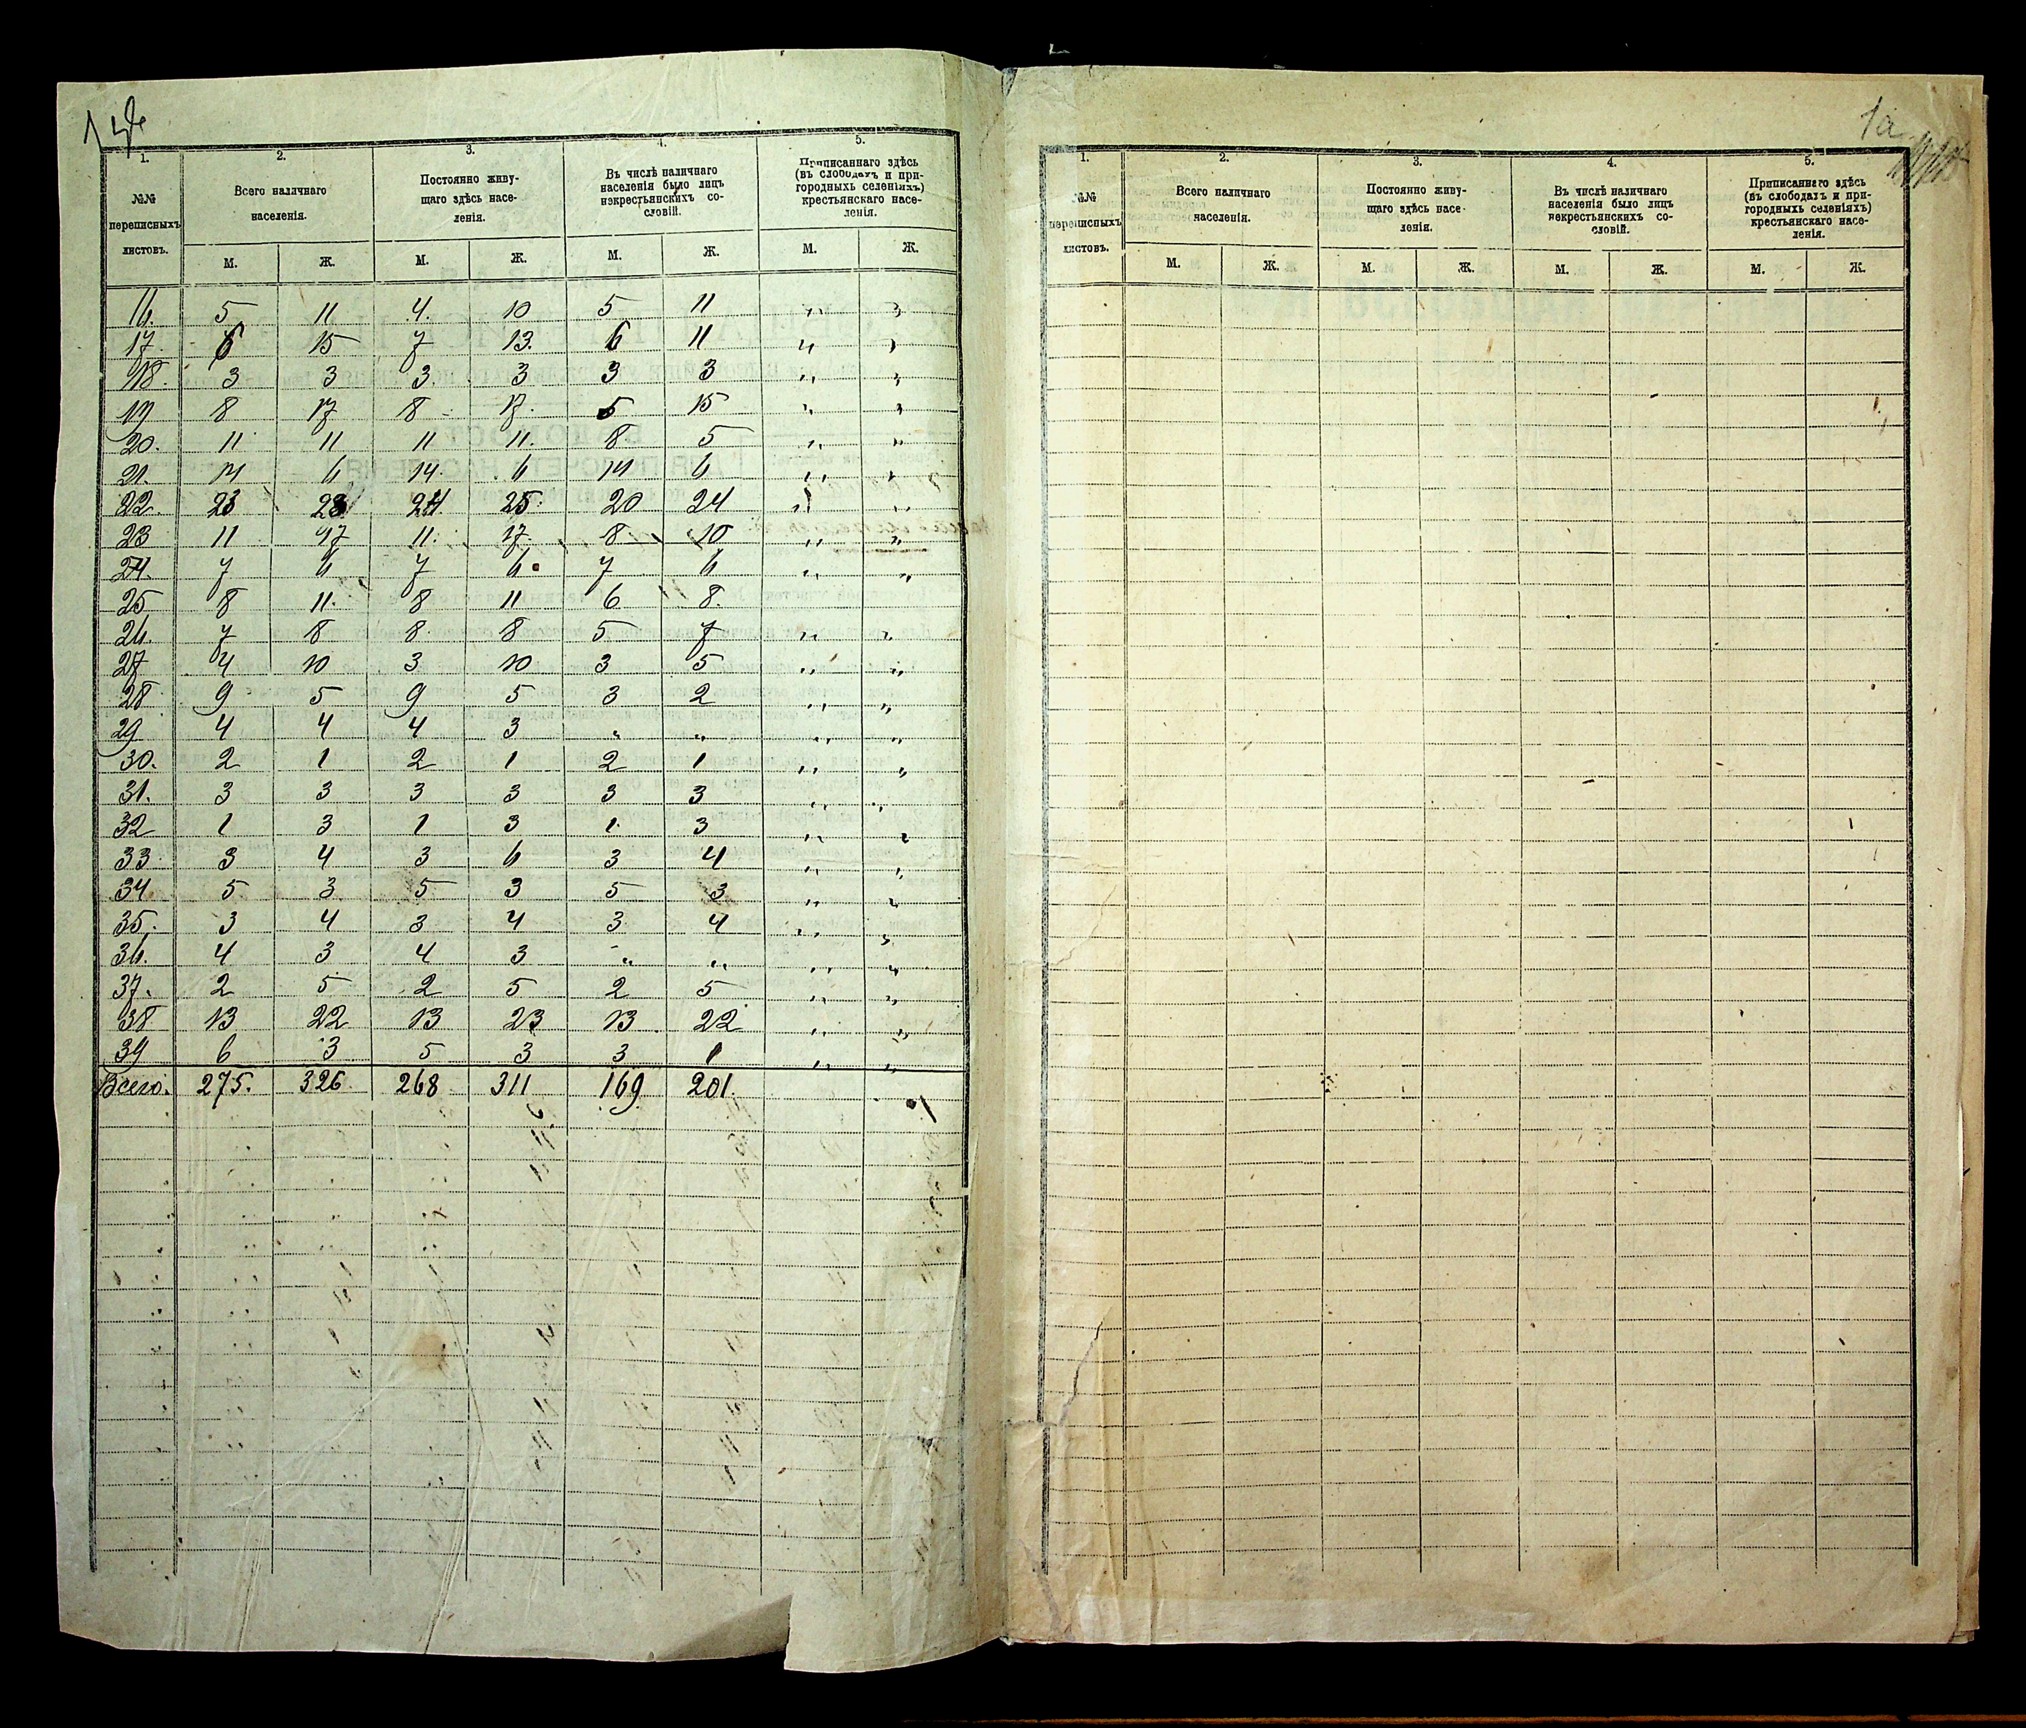 1. 2. 3. 4. 5.
№№ переписныхъ листовъ. Всего наличнаго населенія. Постоянно живущаго здѣсь населенія. Въ числѣ наличнаго населенія было лицъ некрестьянскихъ сословій. Приписаннаго здѣсь (въ слободахъ и пригородныхъ селеніяхъ) крестьянскаго населенія.
М. Ж. М. Ж. М. Ж. М. Ж.
16. 5 11 4. 10 5 11 „ „
17. 6 15 7 13. 6 11 „ „
18. 3 3 3. 3 3 3 „ „
19 8 17 8 17. 5 15 „ „
20. 11 11 11 11. 8 5 „ „
21. 14 6 14. 6 14 6 „ „
22. 23 28 24 25. 20 24 „ „
23 11 17 11. 17. 8 10 „ „
24. 7 6 7 6 7 6 „ „
25 8 11. 8 11 6 8.
26. 7 8 8. 8 5 7 „ „
27 4 10 3 10 3 5 „ „
28 9 5 9 5 3 2 „ „
29 4 4 4 3 „ „ „ „
30. 2 1 2 1 2 1 „ „
31. 3 3 3 3 3 3 „ „
32 1 3 1 3 1. 3 „ „
33 3 4 3 6 3 4 „ „
34 5 3 5 3 5 3 „ „
35. 3 4 3 4 3 4 „ „
36. 4 3 4 3 „ „ „ „
37. 2 5 2 5 2 5 „ „
38 13 22 13 23 13 22 „ „
39 6 3 5 3 3 1 „ „
Всего. 275. 326. 268 311 169 201.
1а
1. 2. 3. 4. 5.
№№ переписныхъ листовъ. Всего наличнаго населенія. Постоянно живущаго здѣсь населенія. Въ числѣ наличнаго населенія было лицъ некрестьянскихъ сословій. Приписаннаго здѣсь (въ слободахъ и пригородныхъ селеніяхъ) крестьянскаго населенія.
М. Ж. М. Ж. М. Ж. М. Ж.